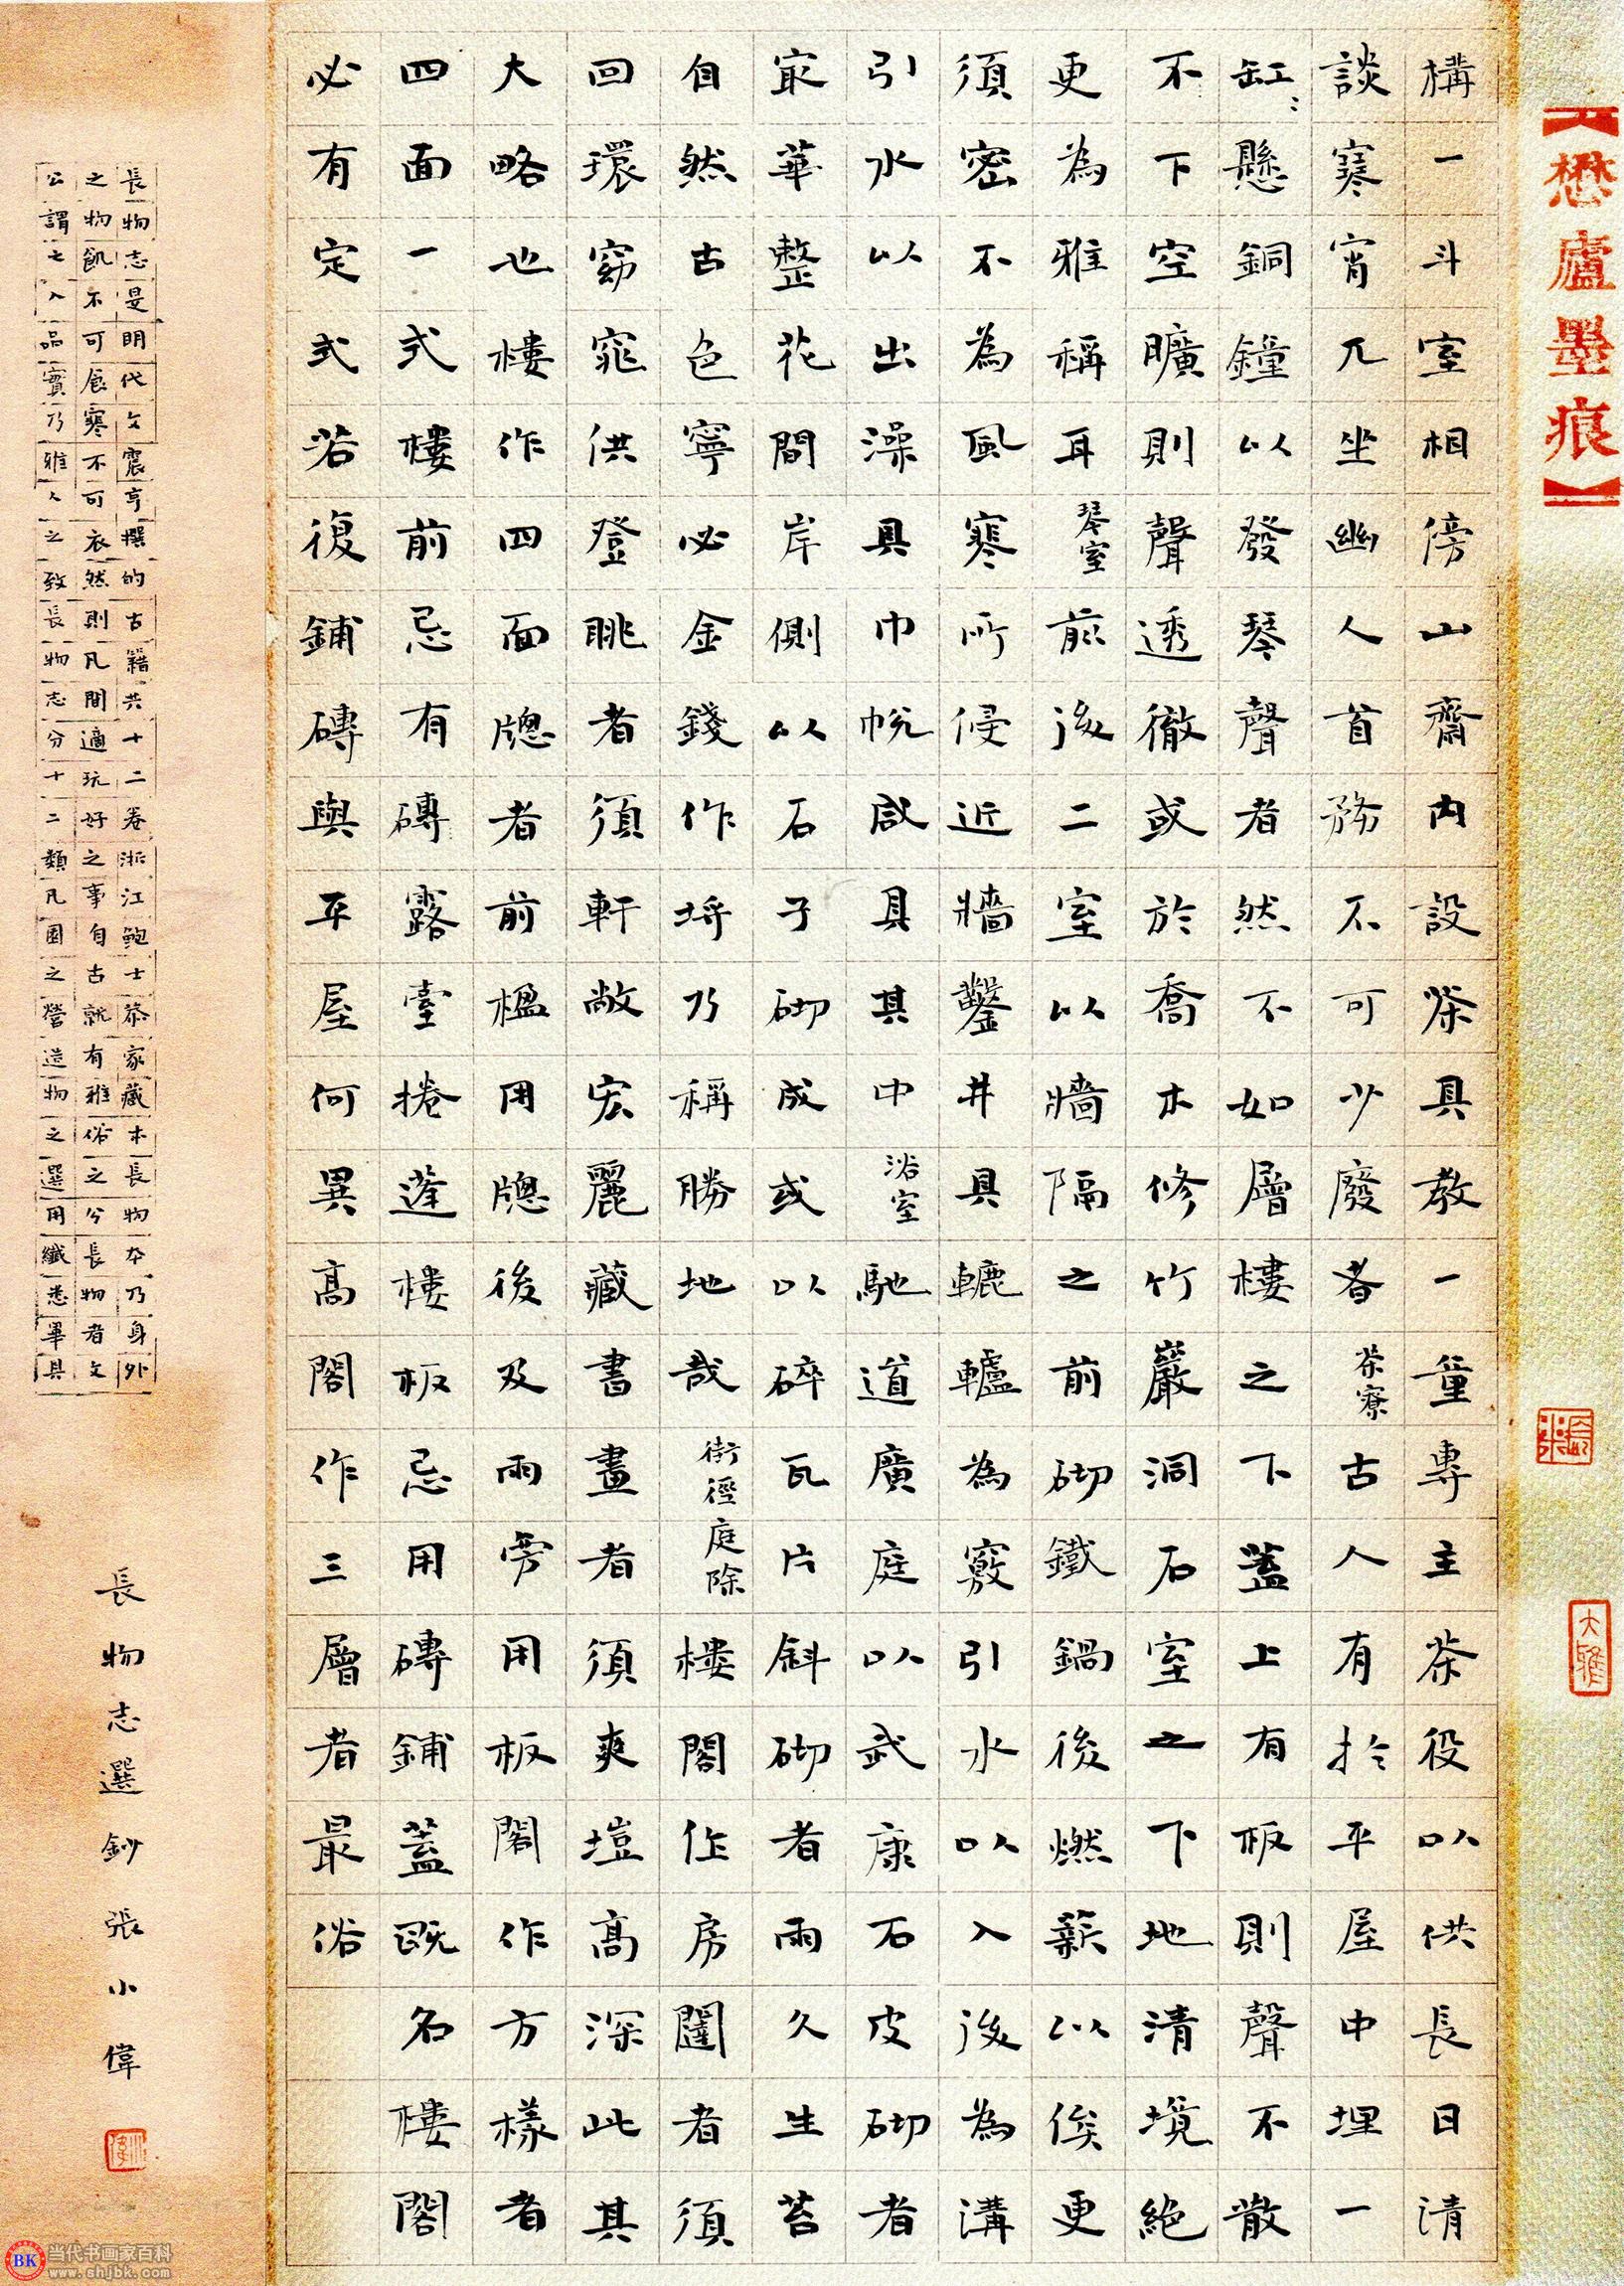 【懋廬墨痕】
構一斗室相傍山齋內設茶具教一童專主茶役以供長日清
談寒宵兀坐幽人首務不可少廢者茶寮古人有於平屋中埋一
缸〻懸銅鐘以發琴聲者然不如層樓之下蓋上有板則聲不散
不下空曠則聲透徹或於喬木修竹巖洞石室之下地清境絕
更為雅稱耳琴室前後二室以牆隔之前砌鐵鍋後燃薪以俟更
須密不為風寒所侵近牆鑿井具轆轤為竅引水以入後為溝
引水以出澡具巾帨咸具其中浴室馳道廣庭以武康石皮砌者
最華整花間岸側以石子砌成或以碎瓦片斜砌者雨久生苔
自然古色寧必金錢作埒乃稱勝地哉街徑庭除樓閣作房闥者須
回環窈窕供登眺者須軒敞宏麗藏書畫者須爽塏高深此其
大略也樓作四面牕者前楹用牕後及雨旁用板閣作方樣者
四面一式樓前忌有磚露臺捲蓬樓板忌用磚鋪蓋既名樓閣
必有定式若復鋪磚與平屋何異高閣作三層者最俗
長物志是明代文震亨撰的古籍共十二卷浙江鮑士恭家藏本長物本乃身外
之物飢不可食寒不可衣然則凡閒適玩好之事自古就有雅俗之分長物者文
公謂之入品實乃雅人之致長物志分十二類凡園之營造物之選用纖悉畢具
長物志選鈔張小偉
大雅
BK 当代书画家百科
www.shljbk.com